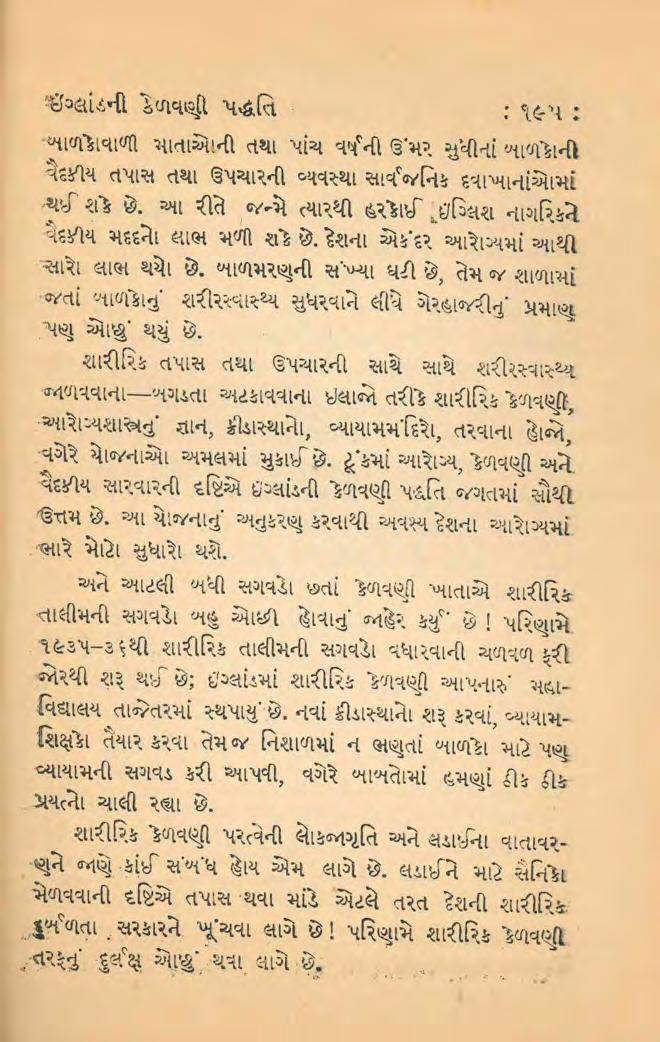 ઇંગ્લાંડની કેળવણી પદ્ધતિ : ૧૯૫ :
બાળકોવાળી માતાઓની તથા પાંચ વર્ષની ઉંમર સુધીનાં બાળકોની
વૈદકીય તપાસ તથા ઉપચારની વ્યવસ્થા સાર્વજનિક દવાખાનાંઓમાં
થઈ શકે છે. આ રીતે જન્મે ત્યારથી હરકોઈ ઇંગ્લિશ નાગરિકને
વૈદકીય મદદનો લાભ મળી શકે છે. દેશના એકંદર આરોગ્યમાં આથી
સારો લાભ થયો છે. બાળમરણની સંખ્યા ઘટી છે, તેમ જ શાળામાં
જતાં બાળકોનું શરીરસ્વાસ્થ્ય સુધરવાને લીધે ગેરહાજરીનું પ્રમાણ
પણ ઓછું થયું છે.
શારીરિક તપાસ તથા ઉપચારની સાથે સાથે શરીરસ્વાસ્થ્ય
જાળવવાના—બગડતા અટકાવવાના ઇલાજો તરીકે શારીરિક કેળવણી,
આરોગ્યશાસ્ત્રનું જ્ઞાન, ક્રીડાસ્થાનો, વ્યાયામમંદિરો, તરવાના હોજો,
વગેરે યોજનાઓ અમલમાં મુકાઈ છે. ટૂંકમાં આરોગ્ય, કેળવણી અને
વૈદકીય સારવારની દૃષ્ટિએ ઇંગ્લાંડની કેળવણી પદ્ધતિ જગતમાં સૌથી
ઉત્તમ છે. આ યોજનાનું અનુકરણ કરવાથી અવશ્ય દેશના આરોગ્યમાં
ભારે મોટો સુધારો થશે.
અને આટલી બધી સગવડો છતાં કેળવણી ખાતાએ શારીરિક
તાલીમની સગવડો બહુ ઓછી હોવાનું જાહેર કર્યું છે! પરિણામે
૧૯૩૫–૩૬થી શારીરિક તાલીમની સગવડો વધારવાની ચળવળ ફરી
જોરથી શરૂ થઈ છે; ઇંગ્લાંડમાં શારીરિક કેળવણી આપનારું મહા-
વિદ્યાલય તાજેતરમાં સ્થપાયું છે. નવાં ક્રીડાસ્થાનો શરૂ કરવાં, વ્યાયામ-
શિક્ષકો તૈયાર કરવા તેમજ નિશાળમાં ન ભણતાં બાળકો માટે પણ
વ્યાયામની સગવડ કરી આપવી, વગેરે બાબતોમાં હમણાં ઠીક ઠીક
પ્રયત્નો ચાલી રહ્યા છે.
શારીરિક કેળવણી પરત્વેની લોકજાગૃતિ અને લડાઈના વાતાવર-
ણને જાણે કાંઈ સંબંધ હોય એમ લાગે છે. લડાઈને માટે સૈનિકો
મેળવવાની દૃષ્ટિએ તપાસ થવા માંડે એટલે તરત દેશની શારીરિક
દુર્બળતા સરકારને ખૂંચવા લાગે છે! પરિણામે શારીરિક કેળવણી
તરફનું દુર્લક્ષ ઓછું થવા લાગે છે.